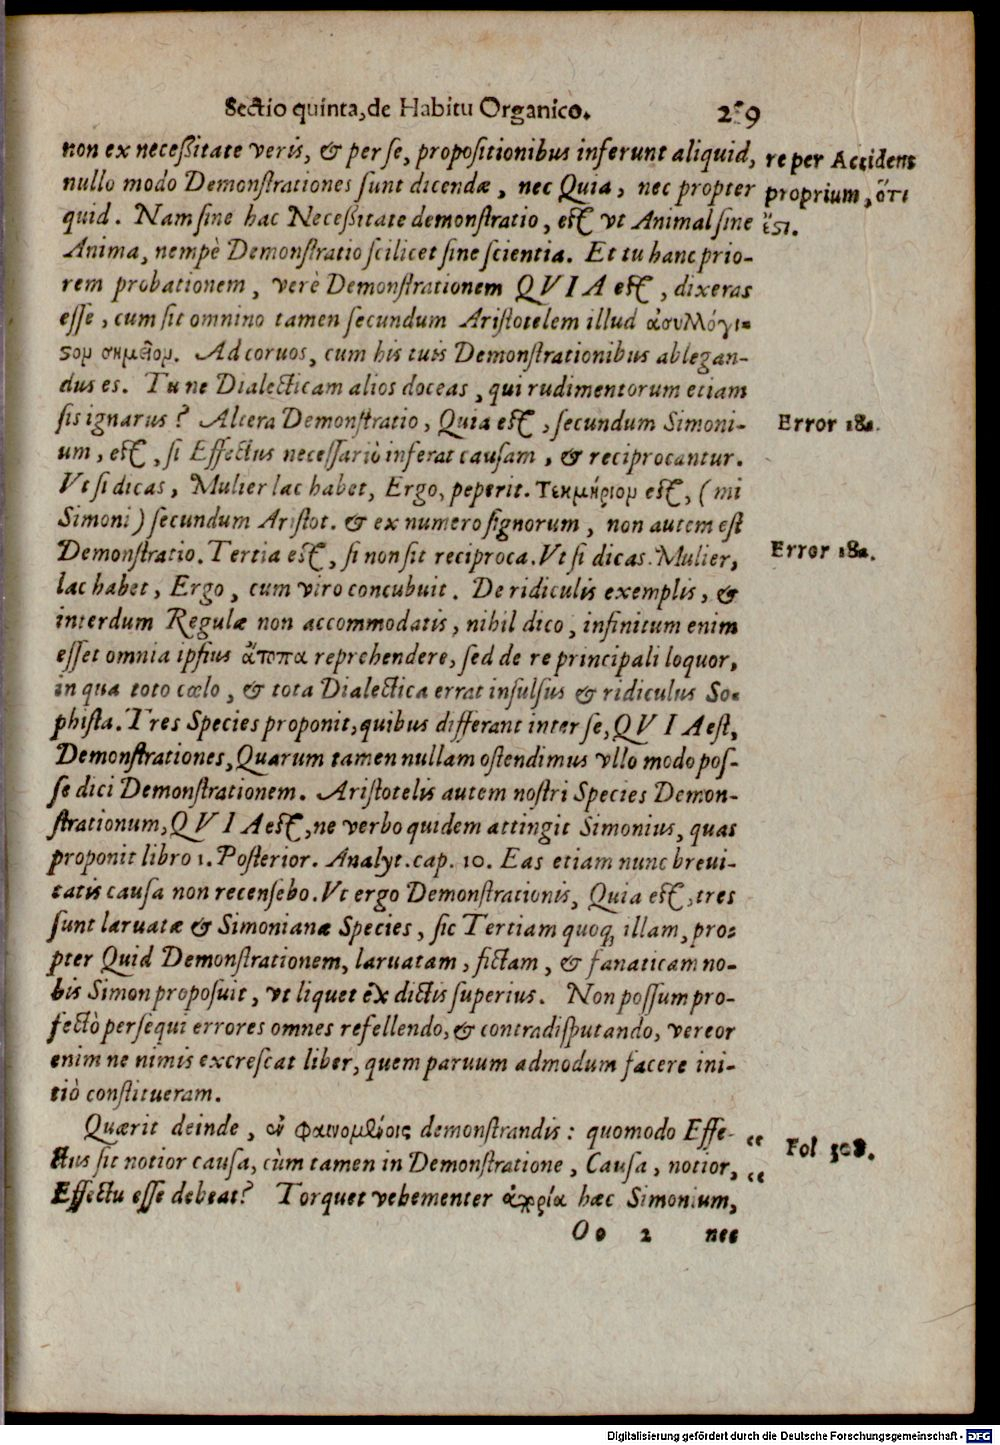 Sectio quinta, de Habitu Organico.
non ex necessitate veris, & per se, propositionibus inferunt aliquid,
nullo modo Demonstrationes sunt dicendæ, nec Quia, nec propter
quid. Nam sine hac Necessitate demonstratio, est vt Animal sine
Anima, nempè Demonstratio scilicet sine scientia. Et tu hanc prio-
rem probationem, verè Demonstrationem QVIA est, dixeras
esse, cum sit omnino tamen secundum Aristotelem illud ἀσυλλόγι-
ςον σημεῖον. Ad coruos, cum his tuis Demonstrationibus ablegan-
dus es. Tu ne Dialecticam alios doceas, qui rudimentorum etiam
sis ignarus? Altera Demonstratio, Quia est, secundum Simoni-
um, est, si Effectus necessariò inferat causam, & reciprocantur.
Vt si dicas, Mulier lac habet, Ergo, peperit. Τεκμήριον est, (mi
Simoni) secundum Aristot. & ex numero signorum, non autem est
Demonstratio. Tertia est, si non sit reciproca. Vt si dicas. Mulier,
lac habet, Ergo, cum viro concubuit. De ridiculis exemplis, &
interdum Regulæ non accommodatis, nihil dico, infinitum enim
esset omnia ipsius ἄτοπα reprehendere, sed de re principali loquor,
in qua toto cœlo, & tota Dialectica errat insulsus & ridiculus So-
phista. Tres Species proponit, quibus differant inter se, QVIA est,
Demonstrationes, Quarum tamen nullam ostendimus vllo modo pos-
se dici Demonstrationem. Aristotelis autem nostri Species Demon-
strationum, QVIA est, ne verbo quidem attingit Simonius, quas
proponit libro 1. Posterior. Analyt. cap. 10. Eas etiam nunc breui-
tatis causa non recensebo. Vt ergo Demonstrationis, Quia est, tres
sunt laruatæ & Simonianæ Species, sic Tertiam quoq; illam, pro-
pter Quid Demonstrationem, laruatam, fictam, & fanaticam no-
bis Simon proposuit, vt liquet ex dictis superius. Non possum pro-
fectò persequi errores omnes refellendo, & contradisputando, vereor
enim ne nimis excrescat liber, quem paruum admodum facere ini-
tiò constitueram.
Quærit deinde, ἐν φαινομένοις demonstrandis: quomodo Effe-
ctus sit notior causa, cùm tamen in Demonstratione, Causa, notior,
Effectu esse debeat? Torquet vehementer haec Simonium,
Oo 2 nec
re per Accidens
proprium, ὅτι
ἔςι.
Error 181.
Error 182.
Fol 308.